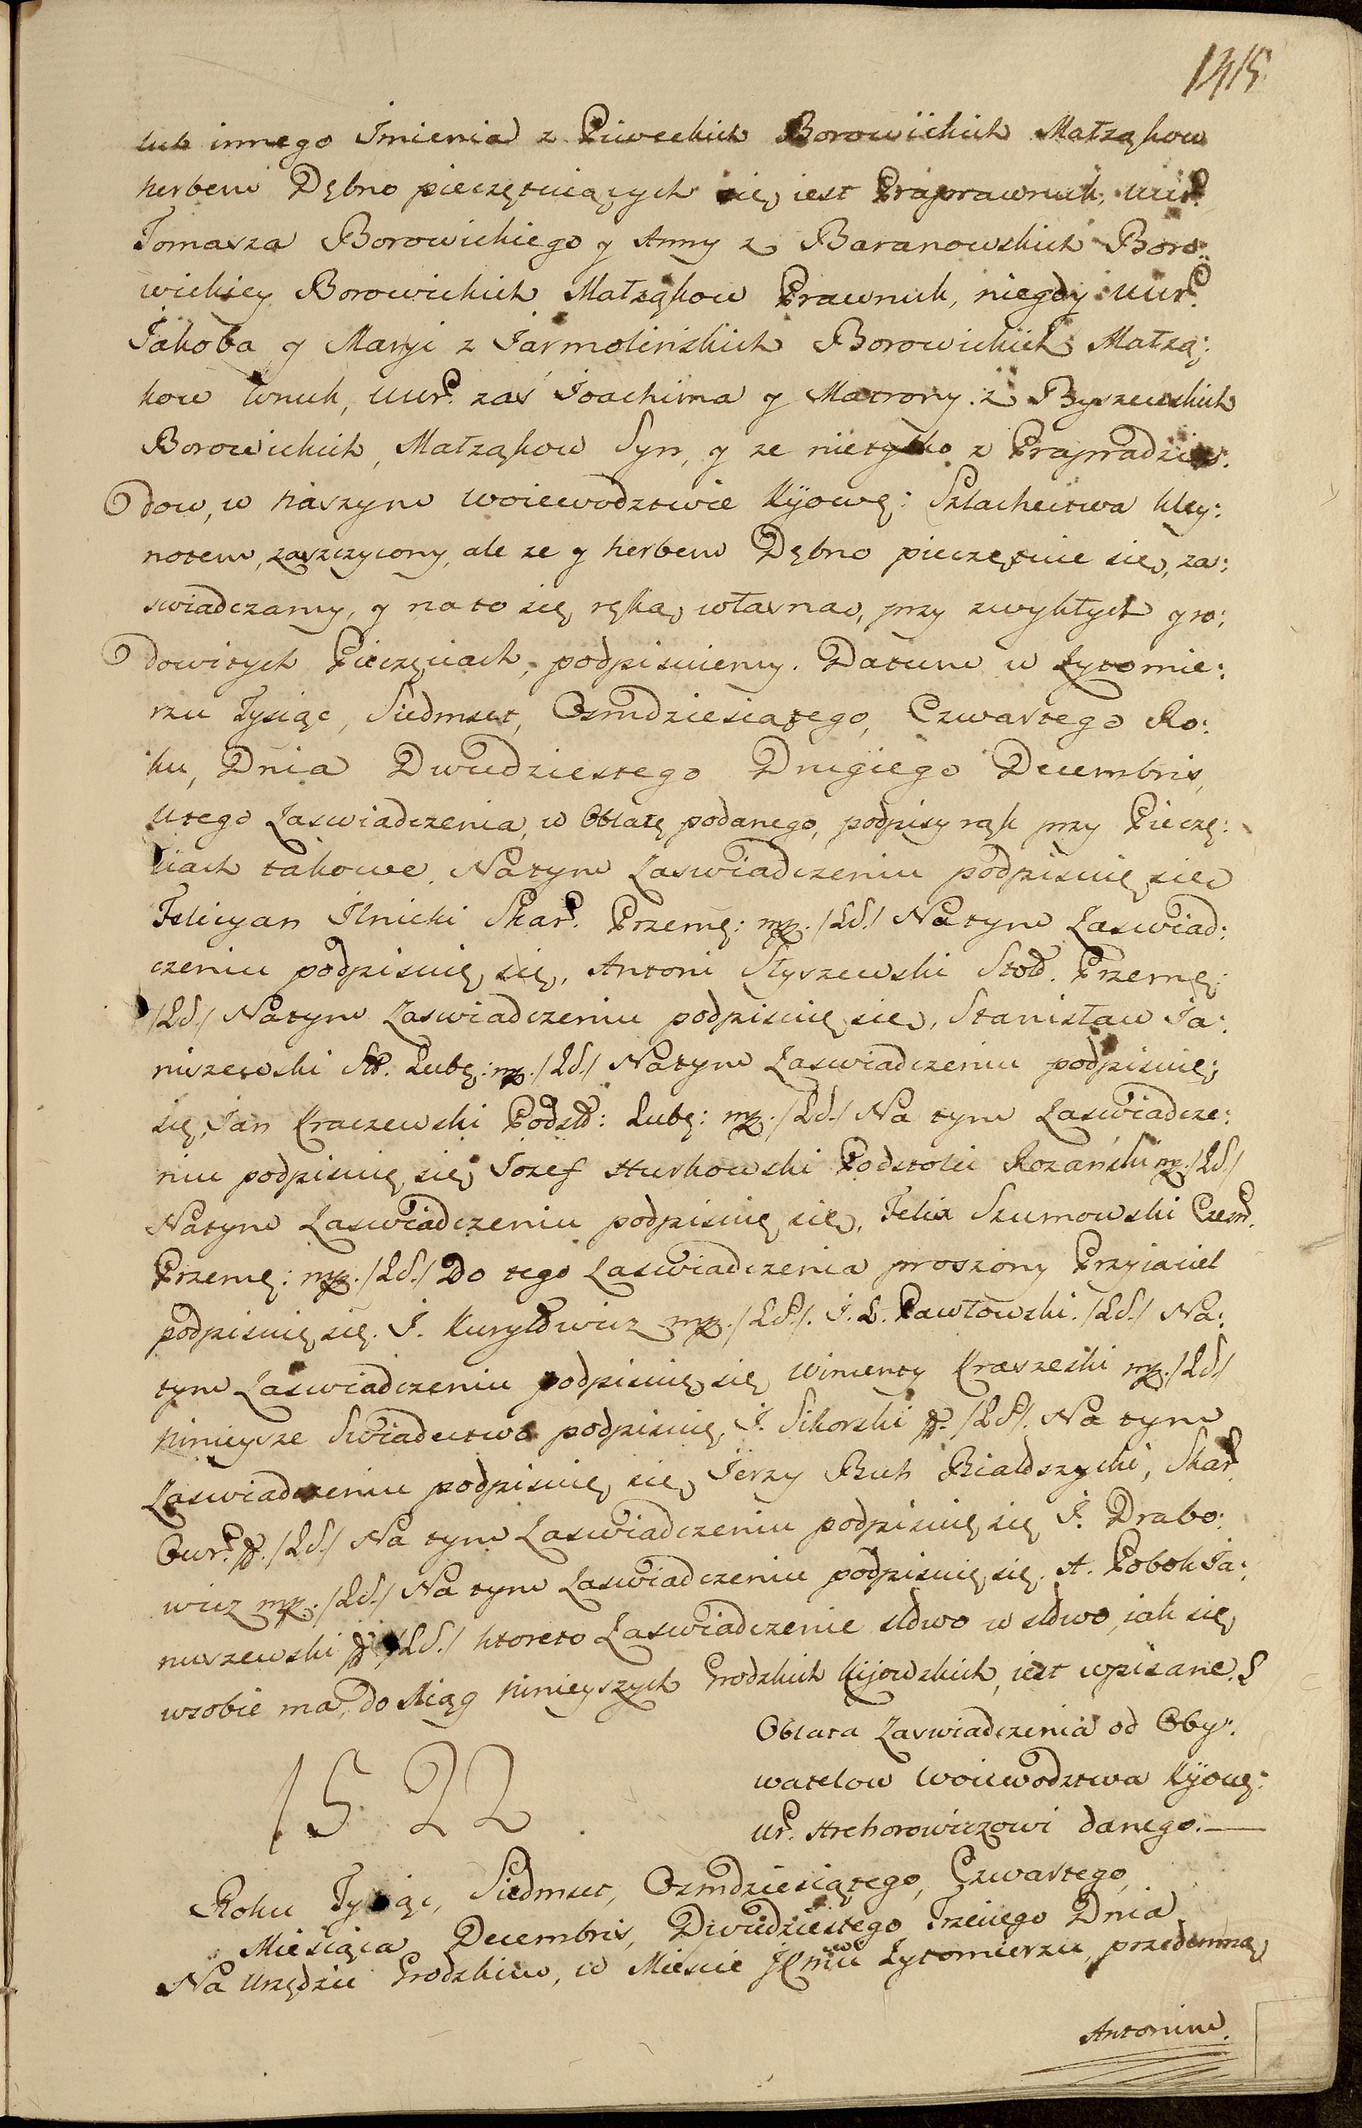 1415
lub innego Jmienia z Piweckich Borowickich Małząkow
herbem Dębno pieczętuiących się, iest Praprawnuk, uur.
Tomasza Borowickiego y Anny z Baranowskich Boro:
wickiey Borowickich Małząkow Prawnuk, niegdy uur.
Jakoba y Maryi z Jarmolińskich Borowickich Małzą:
kow wnuk, uur. zaś Joachima y Matrony z Byszewskich
Borowickich, Małząkow Syn, y ze nietylko z Prapradzia:
dow, w naszym woiewodztwie Kijowę: Szlachectwa kley:
notem, zaszczycony, ale ze y herbem Dębno pieczętuie się, za:
swiadczamy, y na to się ręką własną, przy zwykłych y ro:
dowitych Pieczęciach, podpisuiemy. Datum w Zytomie:
rzu Tysiąc, Siedmset, Osmdziesiątego, Czwartego Ro:
ku, Dnia Dwudziestego Drugiego Decembris,
utego Zaswiadczenia, w Oblatę podanego, podpisy rąk przy Pieczę:
ciach takowe. Natym Zaswiadczeniu podpisuię się
Felicyan Ilnicki Skar. Przemę: mp. /LS./ Natym Zaswiad:
czeniu podpisuię się, Antoni Słyszewski Stoł. Przemę:
/LS/ Natym Zaswiadczeniu podpisuię się, Stanisław Ja:
niszewski St. Lubę: mp. /LS/ Natym Zaswiadczeniu podpisuię:
się, Jan Kraczewski Podst: Lubę: mp. /LS./ Na tym Zaswiadcze:
niu podpisuię się, Jozef Hurkowski Podstoli Rozański mp. /LS/
Natym Zaswiadczeniu podpisuię się, Felix Szumowski Czesn.
Przemę: mp. /LS./ Do tego Zaswiadczenia proszony Przyiaciel
podpisuię się. J. Kuryłowicz mp. /LS/. J. L. Pawłowski. /LS./ Na:
tym Zaswiadczeniu podpisuię się Wincenty Kraszeski mp. /LS/
ninieysze Swiadectwo podpisuię, J. Sikorski mp. /LS/. Na tym
Zaswiadczeniu podpisuię się, Jerzy Buh Białoszycki, Skar.
Owr. mp. /LS./ Na tym Zaswiadczeniu podpisuię się J. Drabo:
wicz mp. /LS./ Na tym Zaswiadczeniu podpisuię się. A. Poboh Ja:
nuszewski mp /LS./ ktoreto Zaswiadczenie słowo w słowo, iak się
wsobie ma, do Xiąg ninieyszych Grodzkich Kijowskich, iest wpisane.
Oblata Zaswiadczenia od Oby:
watelow Woiewodztwa Kijowę:
ur. Hrehorowiczowi danego.
1522
Roku Tysiąc, Siedmset, Osmdziesiątego, Czwartego,
Miesiąca Decembris, Dwudziestego Trzeciego Dnia
Na Urzędzie Grodzkim, w Miescie JKmci Zytomierzu, przedemną
Antonim